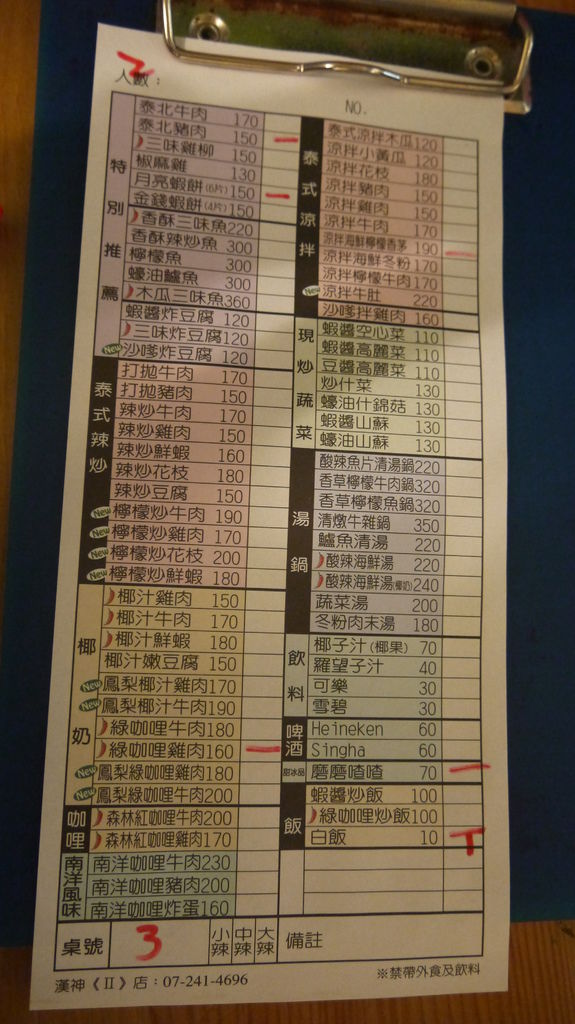 人數： 2
NO.
特別推薦
泰北牛肉 170
泰北豬肉 150
三味雞柳 150
椒麻雞 130
月亮蝦餅(6片) 150
金錢蝦餅(4片) 150
香酥三味魚 220
香酥辣炒魚 300
檸檬魚 300
蠔油鱸魚 300
木瓜三味魚 360
蝦醬炸豆腐 120
三味炸豆腐 120
New 沙嗲炸豆腐 120
泰式辣炒
打拋牛肉 170
打拋豬肉 150
辣炒牛肉 170
辣炒雞肉 150
辣炒鮮蝦 160
辣炒花枝 180
辣炒豆腐 150
New 檸檬炒牛肉 190
New 檸檬炒雞肉 170
New 檸檬炒花枝 200
New 檸檬炒鮮蝦 180
椰奶
椰汁雞肉 150
椰汁牛肉 170
椰汁鮮蝦 180
椰汁嫩豆腐 150
New 鳳梨椰汁雞肉 170
New 鳳梨椰汁牛肉 190
綠咖哩牛肉 180
綠咖哩雞肉 160
New 鳳梨綠咖哩雞肉 180
New 鳳梨綠咖哩牛肉 200
咖哩
森林紅咖哩牛肉 200
森林紅咖哩雞肉 170
南洋風味
南洋咖哩牛肉 230
南洋咖哩豬肉 200
南洋咖哩炸蛋 160
泰式涼拌
泰式涼拌木瓜 120
涼拌小黃瓜 120
涼拌花枝 180
涼拌豬肉 150
涼拌雞肉 150
涼拌牛肉 170
涼拌海鮮檸檬香茅 190
涼拌海鮮冬粉 170
涼拌檸檬牛肉 170
New 涼拌牛肚 220
沙嗲拌雞肉 160
現炒蔬菜
蝦醬空心菜 110
蝦醬高麗菜 110
豆醬高麗菜 110
炒什菜 130
蠔油什錦菇 130
蝦醬山蘇 130
蠔油山蘇 130
湯鍋
酸辣魚片清湯鍋 220
香草檸檬牛肉鍋 320
香草檸檬魚鍋 320
清燉牛雜鍋 350
鱸魚清湯 220
酸辣海鮮湯 220
酸辣海鮮湯(椰奶) 240
蔬菜湯 200
冬粉肉末湯 180
飲料
椰子汁(椰果) 70
羅望子汁 40
可樂 30
雪碧 30
啤酒
Heineken 60
Singha 60
甜冰品
磨磨喳喳 70
飯
蝦醬炒飯 100
綠咖哩炒飯 100
白飯 10
桌號 3 小辣 中辣 大辣 備註
漢神《Ⅱ》店：07-241-4696
※禁帶外食及飲料